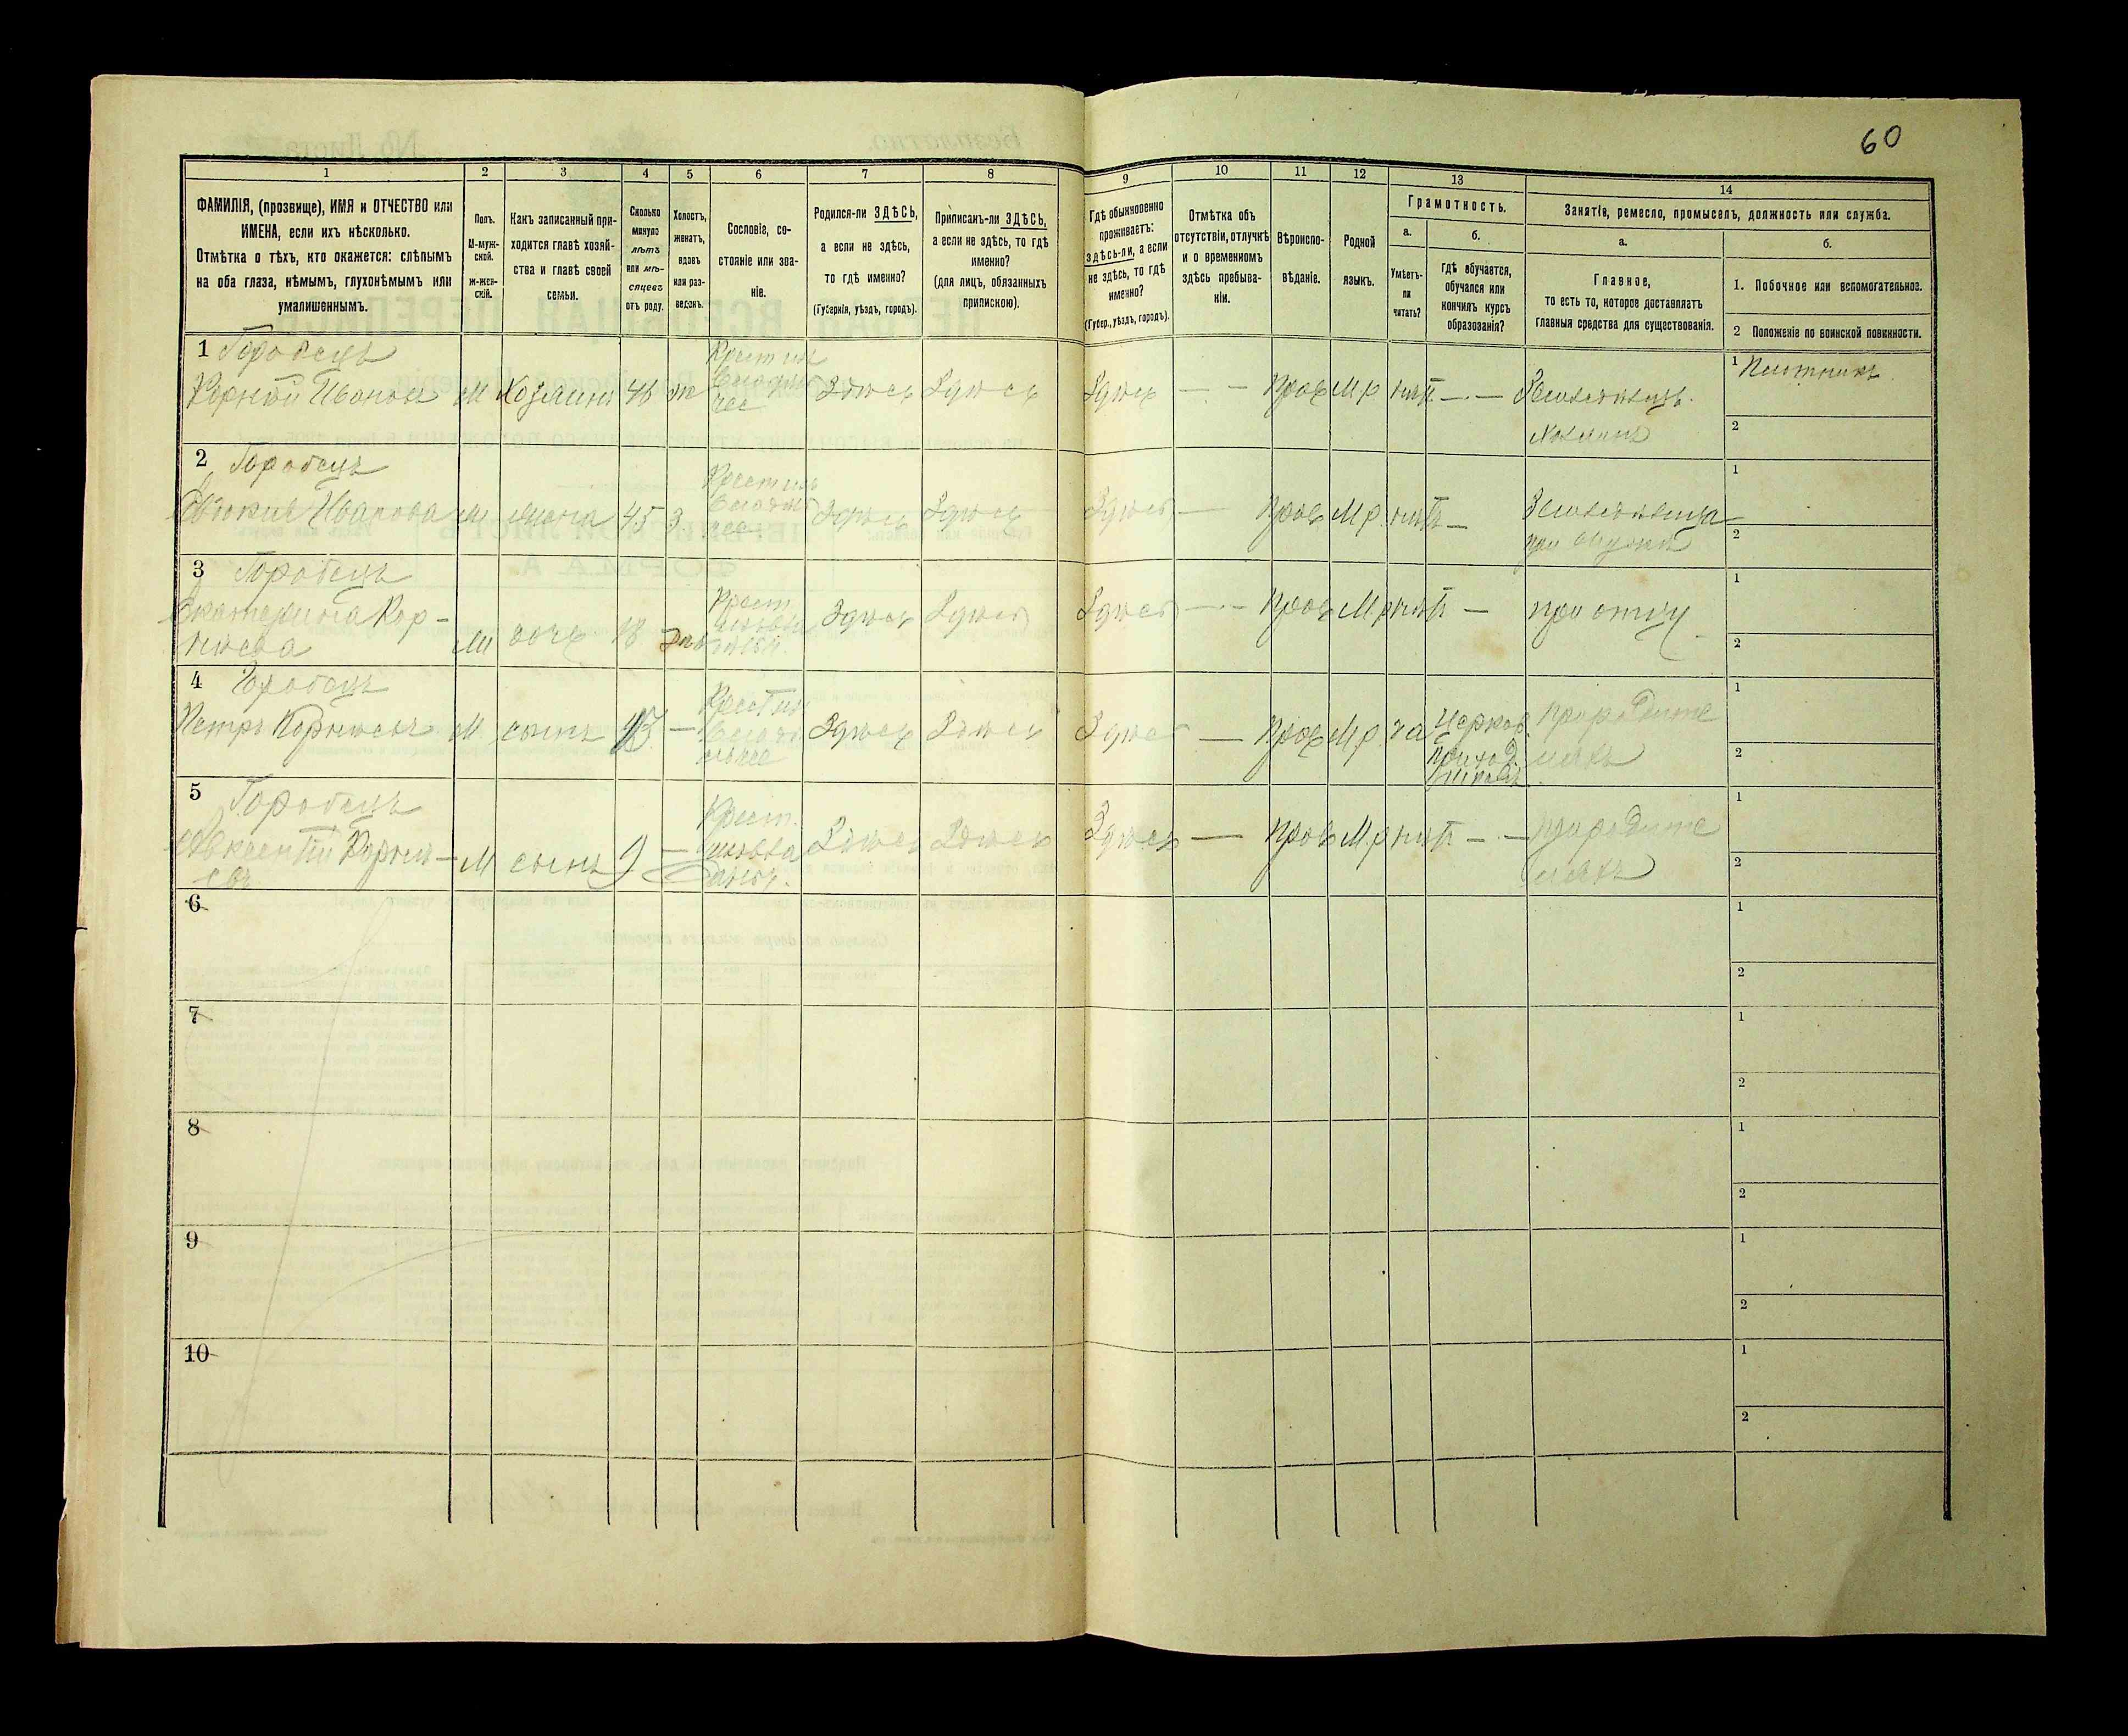 60
1 2 3 4 5 6 7 8 9 10 11 12 13 14
ФАМИЛІЯ, (прозвище), ИМЯ и ОТЧЕСТВО или
ИМЕНА, если ихъ нѣсколько.
Отмѣтка о тѣхъ, кто окажется: слѣпымъ
на оба глаза, нѣмымъ, глухонѣмымъ или
умалишеннымъ.
Полъ.
М-муж-
ской.
ж-жен-
скій.
Какъ записанный при-
ходится главѣ хозяй-
ства и главѣ своей
семьи.
Сколько
минуло
лѣтъ
или мѣ-
сяцевъ
отъ роду.
Холостъ,
женатъ,
вдовъ
или раз-
веденъ.
Сословіе, со-
стояніе или зва-
ніе.
Родился-ли ЗДѢСЬ,
а если не здѣсь,
то гдѣ именно?
(Губернія, уѣздъ, городъ).
Приписанъ-ли ЗДѢСЬ,
а если не здѣсь, то гдѣ
именно?
(для лицъ, обязанныхъ
припискою).
Гдѣ обыкновенно
проживаетъ:
здѣсь-ли, а если
не здѣсь, то гдѣ
именно?
(Губер., уѣздъ, городъ).
Отмѣтка объ
отсутствіи, отлучкѣ
и о временномъ
здѣсь пребыва-
ніи.
Вѣроиспо-
вѣданіе.
Родной
языкъ.
Грамотность.
а.
Умѣетъ-
ли
читать?
б.
гдѣ обучается,
обучался или
кончилъ курсъ
образованія?
Занятіе, ремесло, промыселъ, должность или служба.
а.
Главное,
то есть то, которое доставляетъ
главныя средства для существованія.
б.
1. Побочное или вспомогательное.
2 Положеніе по воинской повинности.
1 Горобецъ
Корній Ивановъ М Хозяинъ 46 Здѣсь Здѣсь Здѣсь — - Прав М.р. нѣт — — Земледѣлецъ
Хозяинъ
1 Плотникъ
2
2 Горобецъ
Ивановa жена 45 З. Здѣсь Здѣсь Здѣсь — Прав М.р. нѣт — Земледѣлица
при
1
2
3 Горобецъ
Екатерина Кор-
нѣева дочь 18 Здѣсь Здѣсь Здѣсь — - Прав М.р. нѣт — при отцу
1
2
4 Горобецъ
Петръ Корнѣевъ М сынъ 13 — Здѣсь Здѣсь Здѣсь — Прав М.р. да Церков.
приход.
при родите
ляхъ
1
2
5 Горобецъ
Авксентій Корнѣ-
евъ М сынъ 9 — Здѣсь Здѣсь Здѣсь — Прав М.р. нѣт — — при родите
ляхъ
1
2
6
1
2
7
1
2
8
1
2
9
1
2
10
1
2